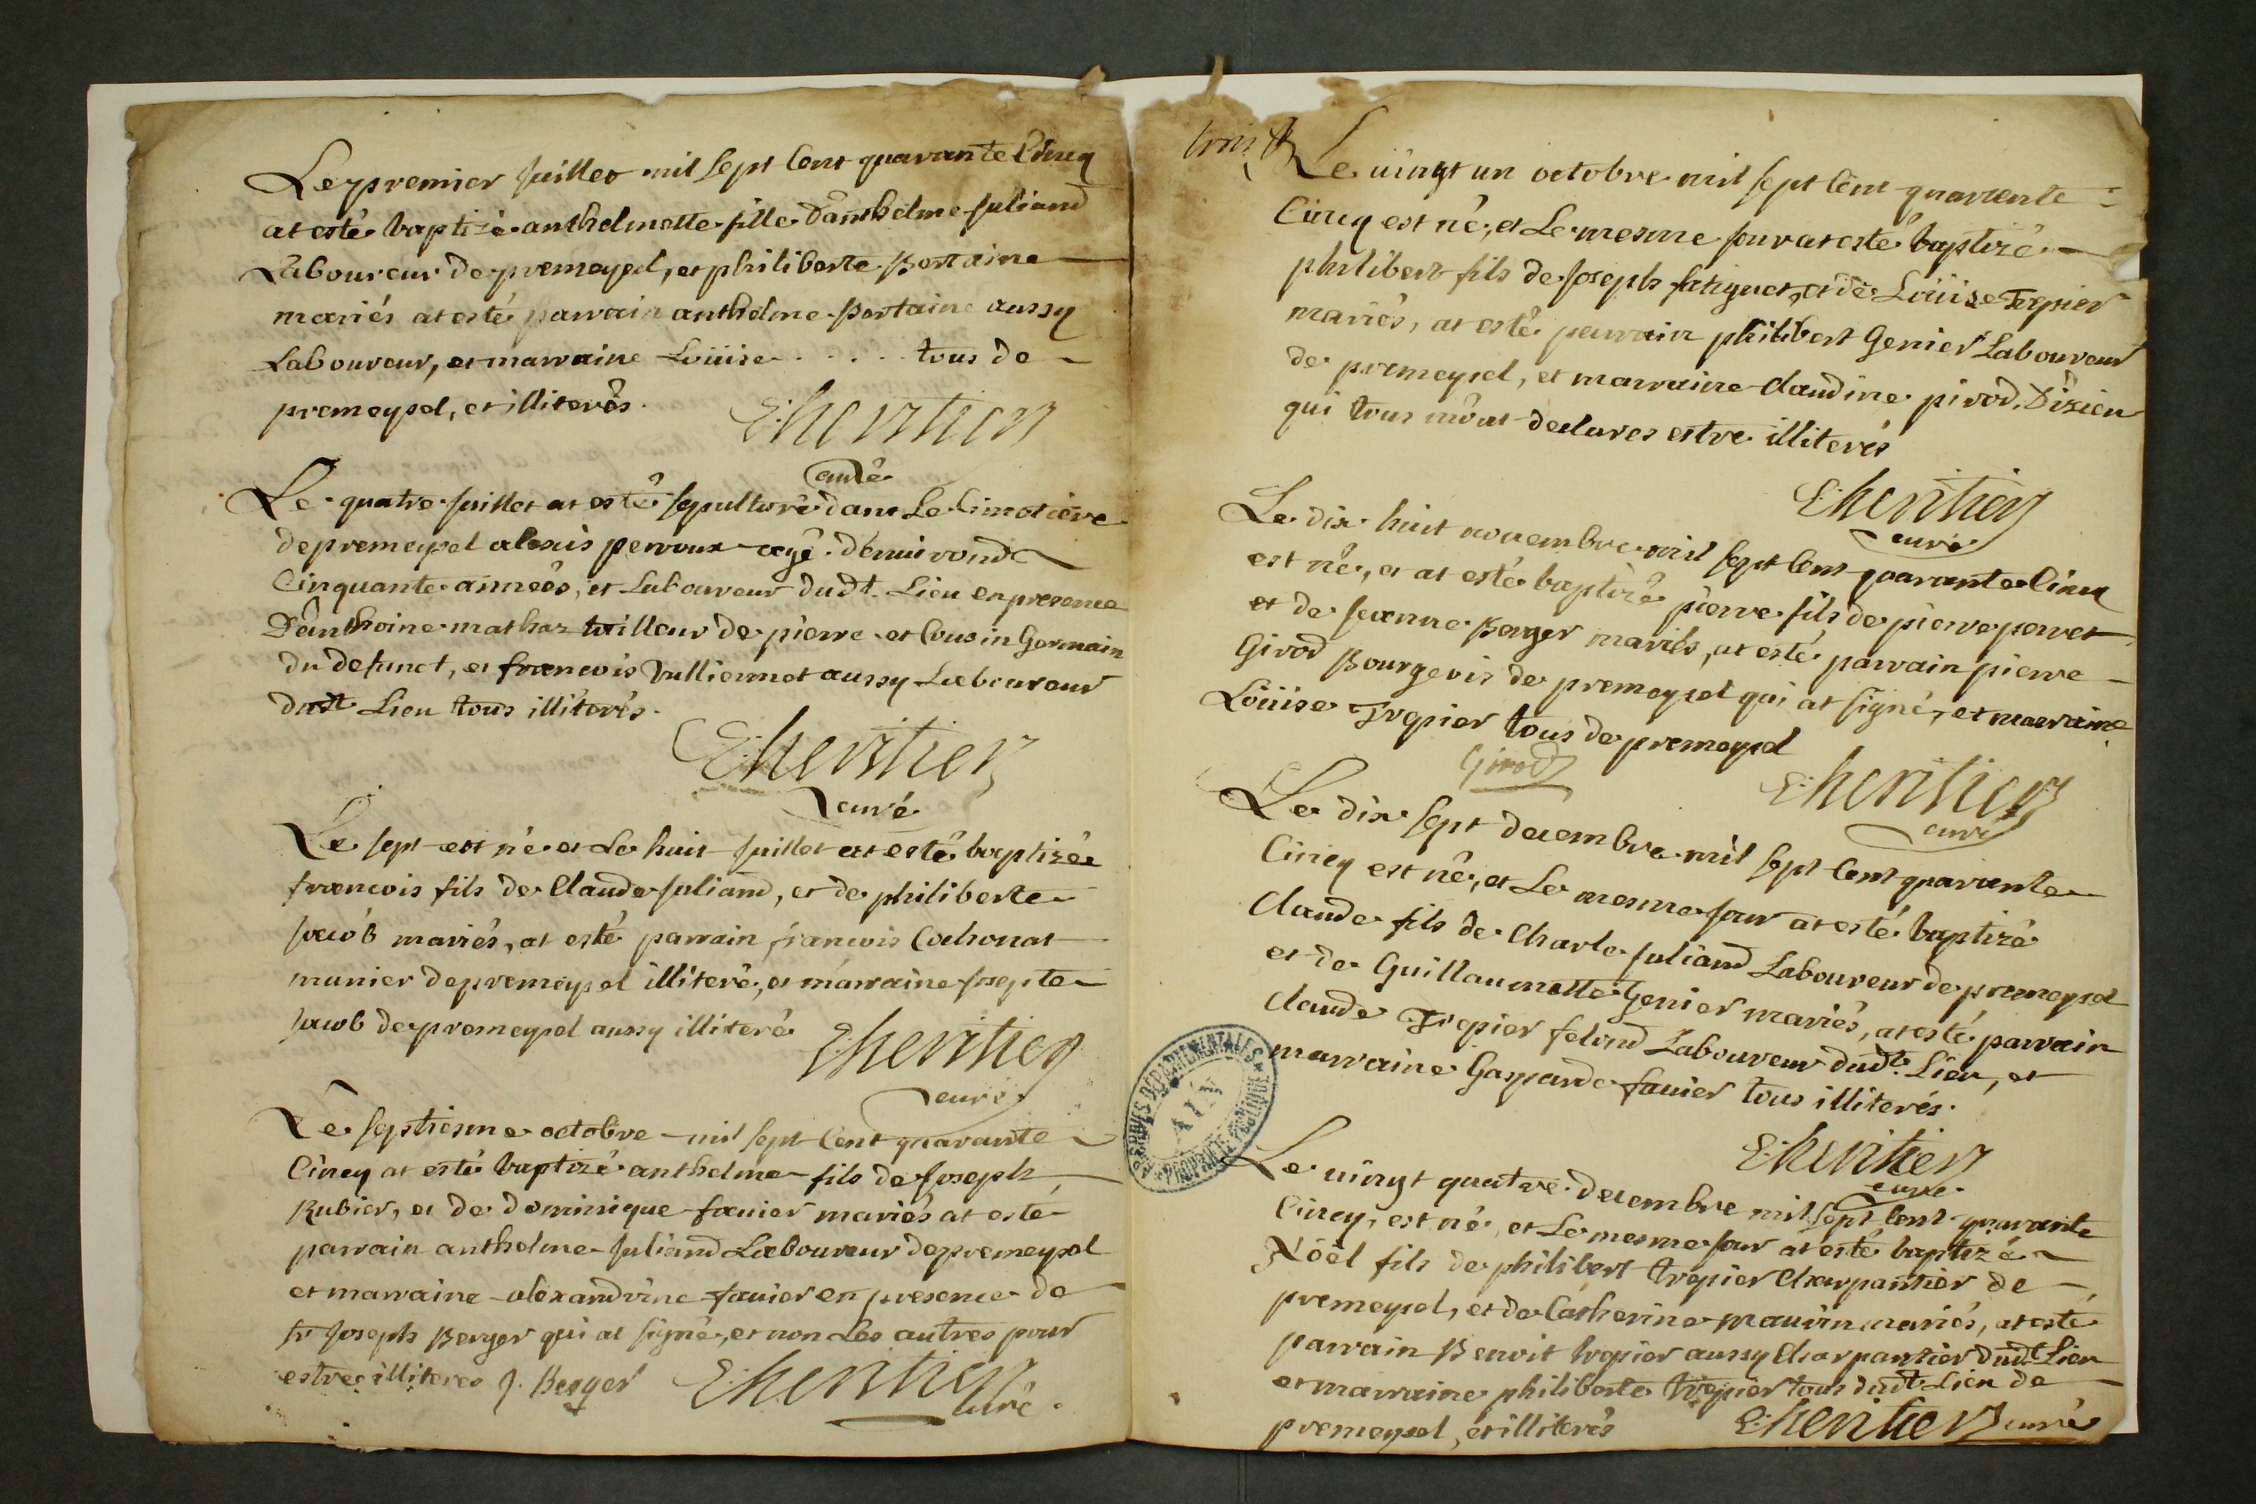 Le premier Juillet mil sept Cent quarante Cincq
at esté baptizé anthelmette fille d'anthelme Juliand
Laboureur de premeysel, et philiberte Bertaine
mariés at esté parrain anthelme Bertaine aussy
Laboureur, et marraine Loüise . . . . . tous de
premeysel, et illiterés.
E: heritier
curé
Le quatre Juillet at esté sepulturé dans Le Cimetiere
de premeysel alexis perroux agé d'environd
Cinquante années, et Laboureur dudt. Lieu en presence
D'anthoine mathaz tailleur de pierre et Cousin Germain
du defunct, et francois Vulliermot aussy Laboureur
dudt Lieu tous illiterés.
E: heritier
curé
Le sept est né et Le huit Juillet at esté baptizée
francois fils de Claude Juliand, et de philiberte
Jacob mariés, at esté parrain francois Cochonat
munier de premeysel illiteré, et marraine Josepte
Jacob de premeysel aussy illiteré
E: heritier
curé
Le septiesme octobre mil sept Cent quarante
Cincq at esté baptizé anthelme fils de Joseph
Rubier, et de dominique fauier mariés at esté
parrain anthelme Juliand Laboureur de premeysel
et marraine alexandrine fauier en presence de
sr Joseph Berger qui at signé, et non Les autres pour
estre illiteres J. Berger E: heritier
curé.
trois
Le uingt un octobre mil sept Cent quarente
Cincq est né, et Le mesme jour at esté baptizé
philibert fils de Joseph fatiguet, et de Loüise Trepier
mariés, at esté parrain philibert Genier Laboureur
de premeysel, et marraine Claudine pirod D'izieu
qui tous m'ont declares estre illiterés
E: heritier
curé
Le dix huit nouembre mil sept Cent quarante Cincq
est né, et at esté baptizé pierre fils de pierre perret
et de Jeanne Berger mariés, at esté parrain pierre
Girod Bourgeois de premeysel qui at signé, et marraine
Loüise Trepier tous de premeysel
Girod
E: heritier
curé
Le dix sept decembre mil sept Cent quarante
Cincq est né, et Le mesme jour at esté baptizé
Claude fils de Charle Juliand Laboureur de premeysel
et de Guillaumette Genier mariés, at esté parrain
Claude Trepier felond Laboureur dudt. Lieu, et
marraine Gasparde fauier tous illiterés.
E: heritier
curé
Le uingt quatre decembre mil sept Cent quarante
Cincq, est né, et Le mesme jour at esté baptizé
Nöel fils de philibert trepier Charpantier de
premeysel, et de Catherine mauvin mariés, at esté
parrain Benoit trepier aussy Charpantier dudt Lieu
et marraine philiberte trepier tous dudt Lieu de
premeysel, et illiterés E: heritier curé
ARCHIVES DEPARTEMENTALES
AIN
PROPRIETE PUBLIQUE